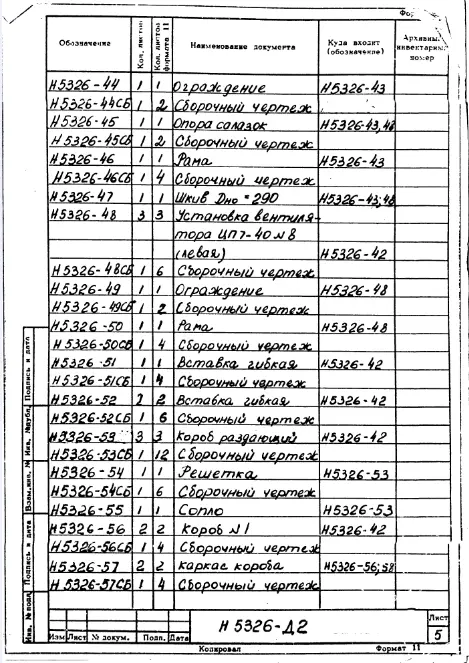 Фор
Обозначение Кол. листов Кол. листов формата 11 Наименование документа Куда входит (обозначение) Архивный инвентарный номер
Н5326-44 1 1 Ограждение Н5326-43
Н5326-44СБ 1 2 Сборочный чертеж
Н5326-45 1 1 Опора салазок Н5326-43,48
Н5326-45СБ 1 2 Сборочный чертеж
Н5326-46 1 1 Рама Н5326-43
Н5326-46СБ 1 4 Сборочный чертеж
Н5326-47 1 1 Шкив Dно=290 Н5326-43;48
Н5326-48 3 3 Установка вентиля-
тора ЦП7-40 N8
(левая) Н5326-42
Н5326-48СБ 1 6 Сборочный чертеж
Н5326-49 1 1 Ограждение Н5326-48
Н5326-49СБ 1 2 Сборочный чертеж
Н5326-50 1 1 Рама Н5326-48
Н5326-50СБ 1 4 Сборочный чертеж
Н5326-51 1 1 Вставка гибкая Н5326-42
Н5326-51СБ 1 4 Сборочный чертеж
Н5326-52 2 2 Вставка гибкая Н5326-42
Н5326-52СБ 1 6 Сборочный чертеж
Н5326-53 3 3 Короб раздающий Н5326-42
Н5326-53СБ 1 12 Сборочный чертеж
Н5326-54 1 1 Решетка Н5326-53
Н5326-54СБ 1 6 Сборочный чертеж
Н5326-55 1 1 Сопло Н5326-53
Н5326-56 2 2 Короб N1 Н5326-42
Н5326-56СБ 1 4 Сборочный чертеж
Н5326-57 2 2 Каркас короба Н5326-56;58
Н5326-57СБ 1 4 Сборочный чертеж
Инв. № подл. Подпись и дата Взам.инв. № Инв. №дубл. Подпись и дата
Н5326-Д2
Лист
5
Изм Лист № докум. Подп. Дата
Копировал Формат 11